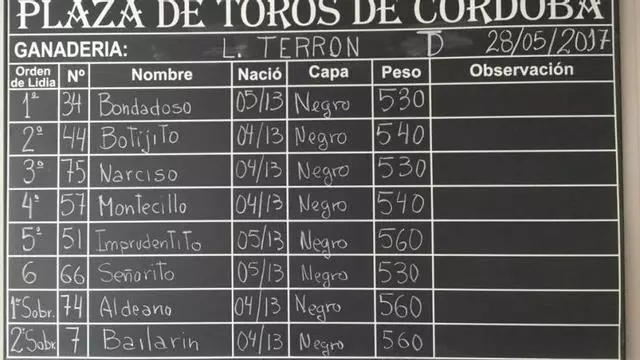 PLAZA DE TOROS DE CORDOBA
GANADERIA: L. TERRON D 28/05/2017
Orden de Lidia Nº Nombre Nació Capa Peso Observación
1ª 34 Bondadoso 05/13 Negro 530
2ª 44 Botijito 04/13 Negro 540
3ª 75 Narciso 04/13 Negro 530
4ª 57 Montecillo 04/13 Negro 540
5ª 51 Imprudentito 05/13 Negro 560
6 66 Señorito 05/13 Negro 530
1ºSobr. 74 Aldeano 04/13 Negro 560
2ºSobr. 7 Bailarin 04/13 Negro 560